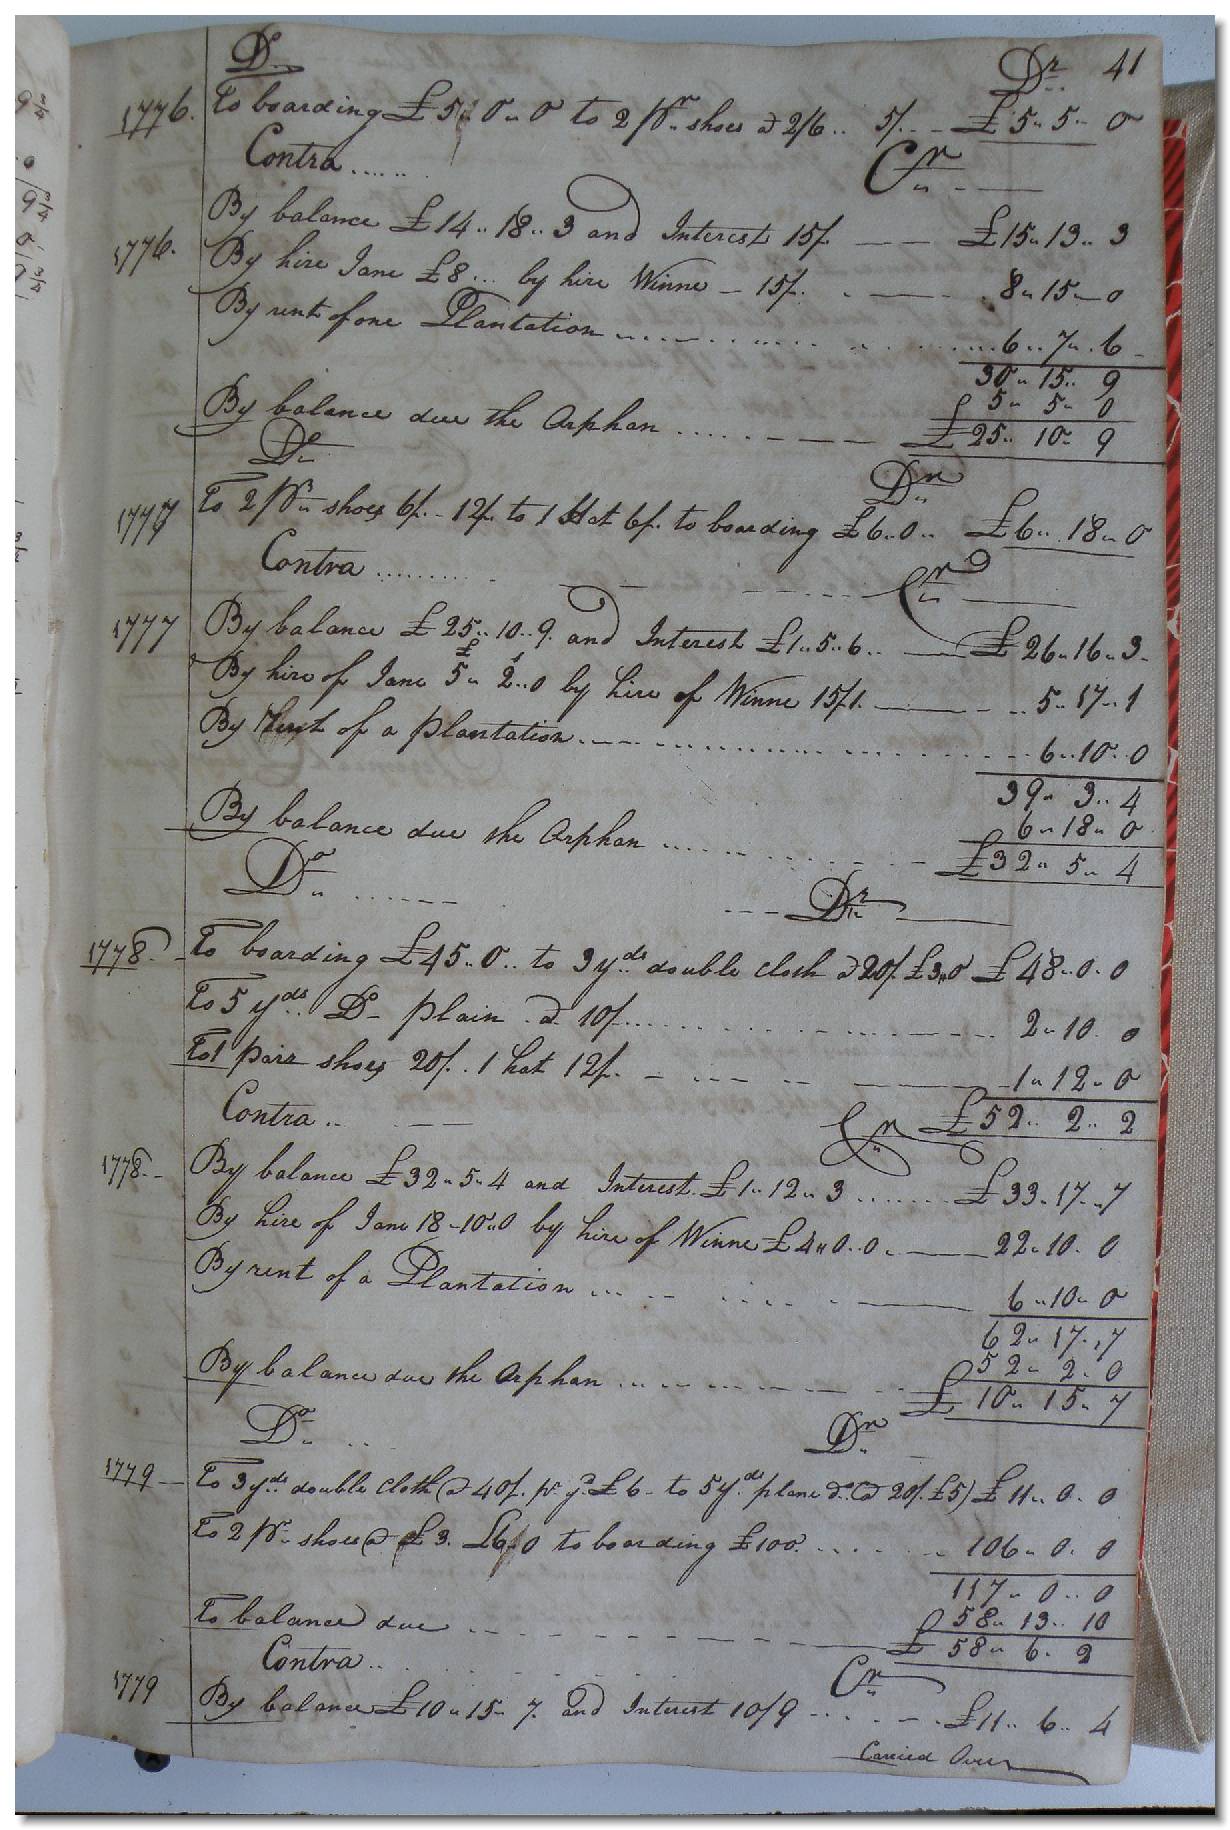 Do Dr 41
1776. To boarding £5 〃 0 〃 0 to 2 Pr shoes @ 2/6 .. 5/. - £5 〃 5 〃 0
Contra ...... Cr
By balance £14 .. 18 .. 3 and Interest 15/. £15 〃 13 .. 3
1776. By hire Jane £8 ... by hire Winne - 15/. 8 〃 15 - 0
By rent of one Plantation ..... 6 .. 7 .. 6
30 〃 15 .. 9
5 〃 5 〃 0
By balance due the Orphan ..... £25 .. 10 〃 9
Do Dr
1777 To 2 Pr shoes 6/. - 12/. to 1 Hat 6/. to boarding £6 .. 0 .. £6 〃 18 〃 0
Contra ......... Cr
1777 By balance £25 .. 10 .. 9. and Interest £1 〃 5 〃 6 .. £26 〃 16 〃 3
By hire of Jane £5 〃 2s .. 0 by hire of Winne 15/1. 5 〃 17 〃 1
By Rent of a plantation ..... 6 .. 10 .. 0
39 〃 3 .. 4
6 〃 18 〃 0
By balance due the Orphan ..... £32 〃 5 〃 4
Do ...... Dr
1778 To boarding £45 .. 0 .. to 3 yds double cloth @ 20/. £3 〃 0 £48 .. 0 . 0
To 5 yds. Do plain @ 10/. ..... 2 〃 10 . 0
To 1 pair shoes 20/. . 1 hat 12/. 1 〃 12 〃 0
Contra .. Cr £52 .. 2 .. 2
1778 By balance £32 〃 5 〃 4 and Interest £1 〃 12 〃 3 ...... £33 〃 17 〃 7
By hire of Jane 18 - 10 〃 0 by hire of Winne £4 〃 0 .. 0 . 22 〃 10 . 0
By rent of a Plantation ... 6 〃 10 〃 0
62 〃 17 .. 7
52 〃 2 〃 0
By balance due the Orphan ..... £10 〃 15 〃 7
Do Dr
1779 To 3 yds double cloth @ 40/. pr yd £6 - to 5 yds plane do @ 20/. £5) £11 〃 0 . 0
To 2 Pr shoes @ £3. £6 〃 0 to boarding £100. ..... 106 〃 0 . 0
117 〃 0 .. 0
58 〃 13 .. 10
To balance due ..... £58 〃 6 〃 2
Contra .. Cr
1779 By balance £10 〃 15 〃 7. and Interest 10/9 ..... £11 .. 6 .. 4
Carried Over